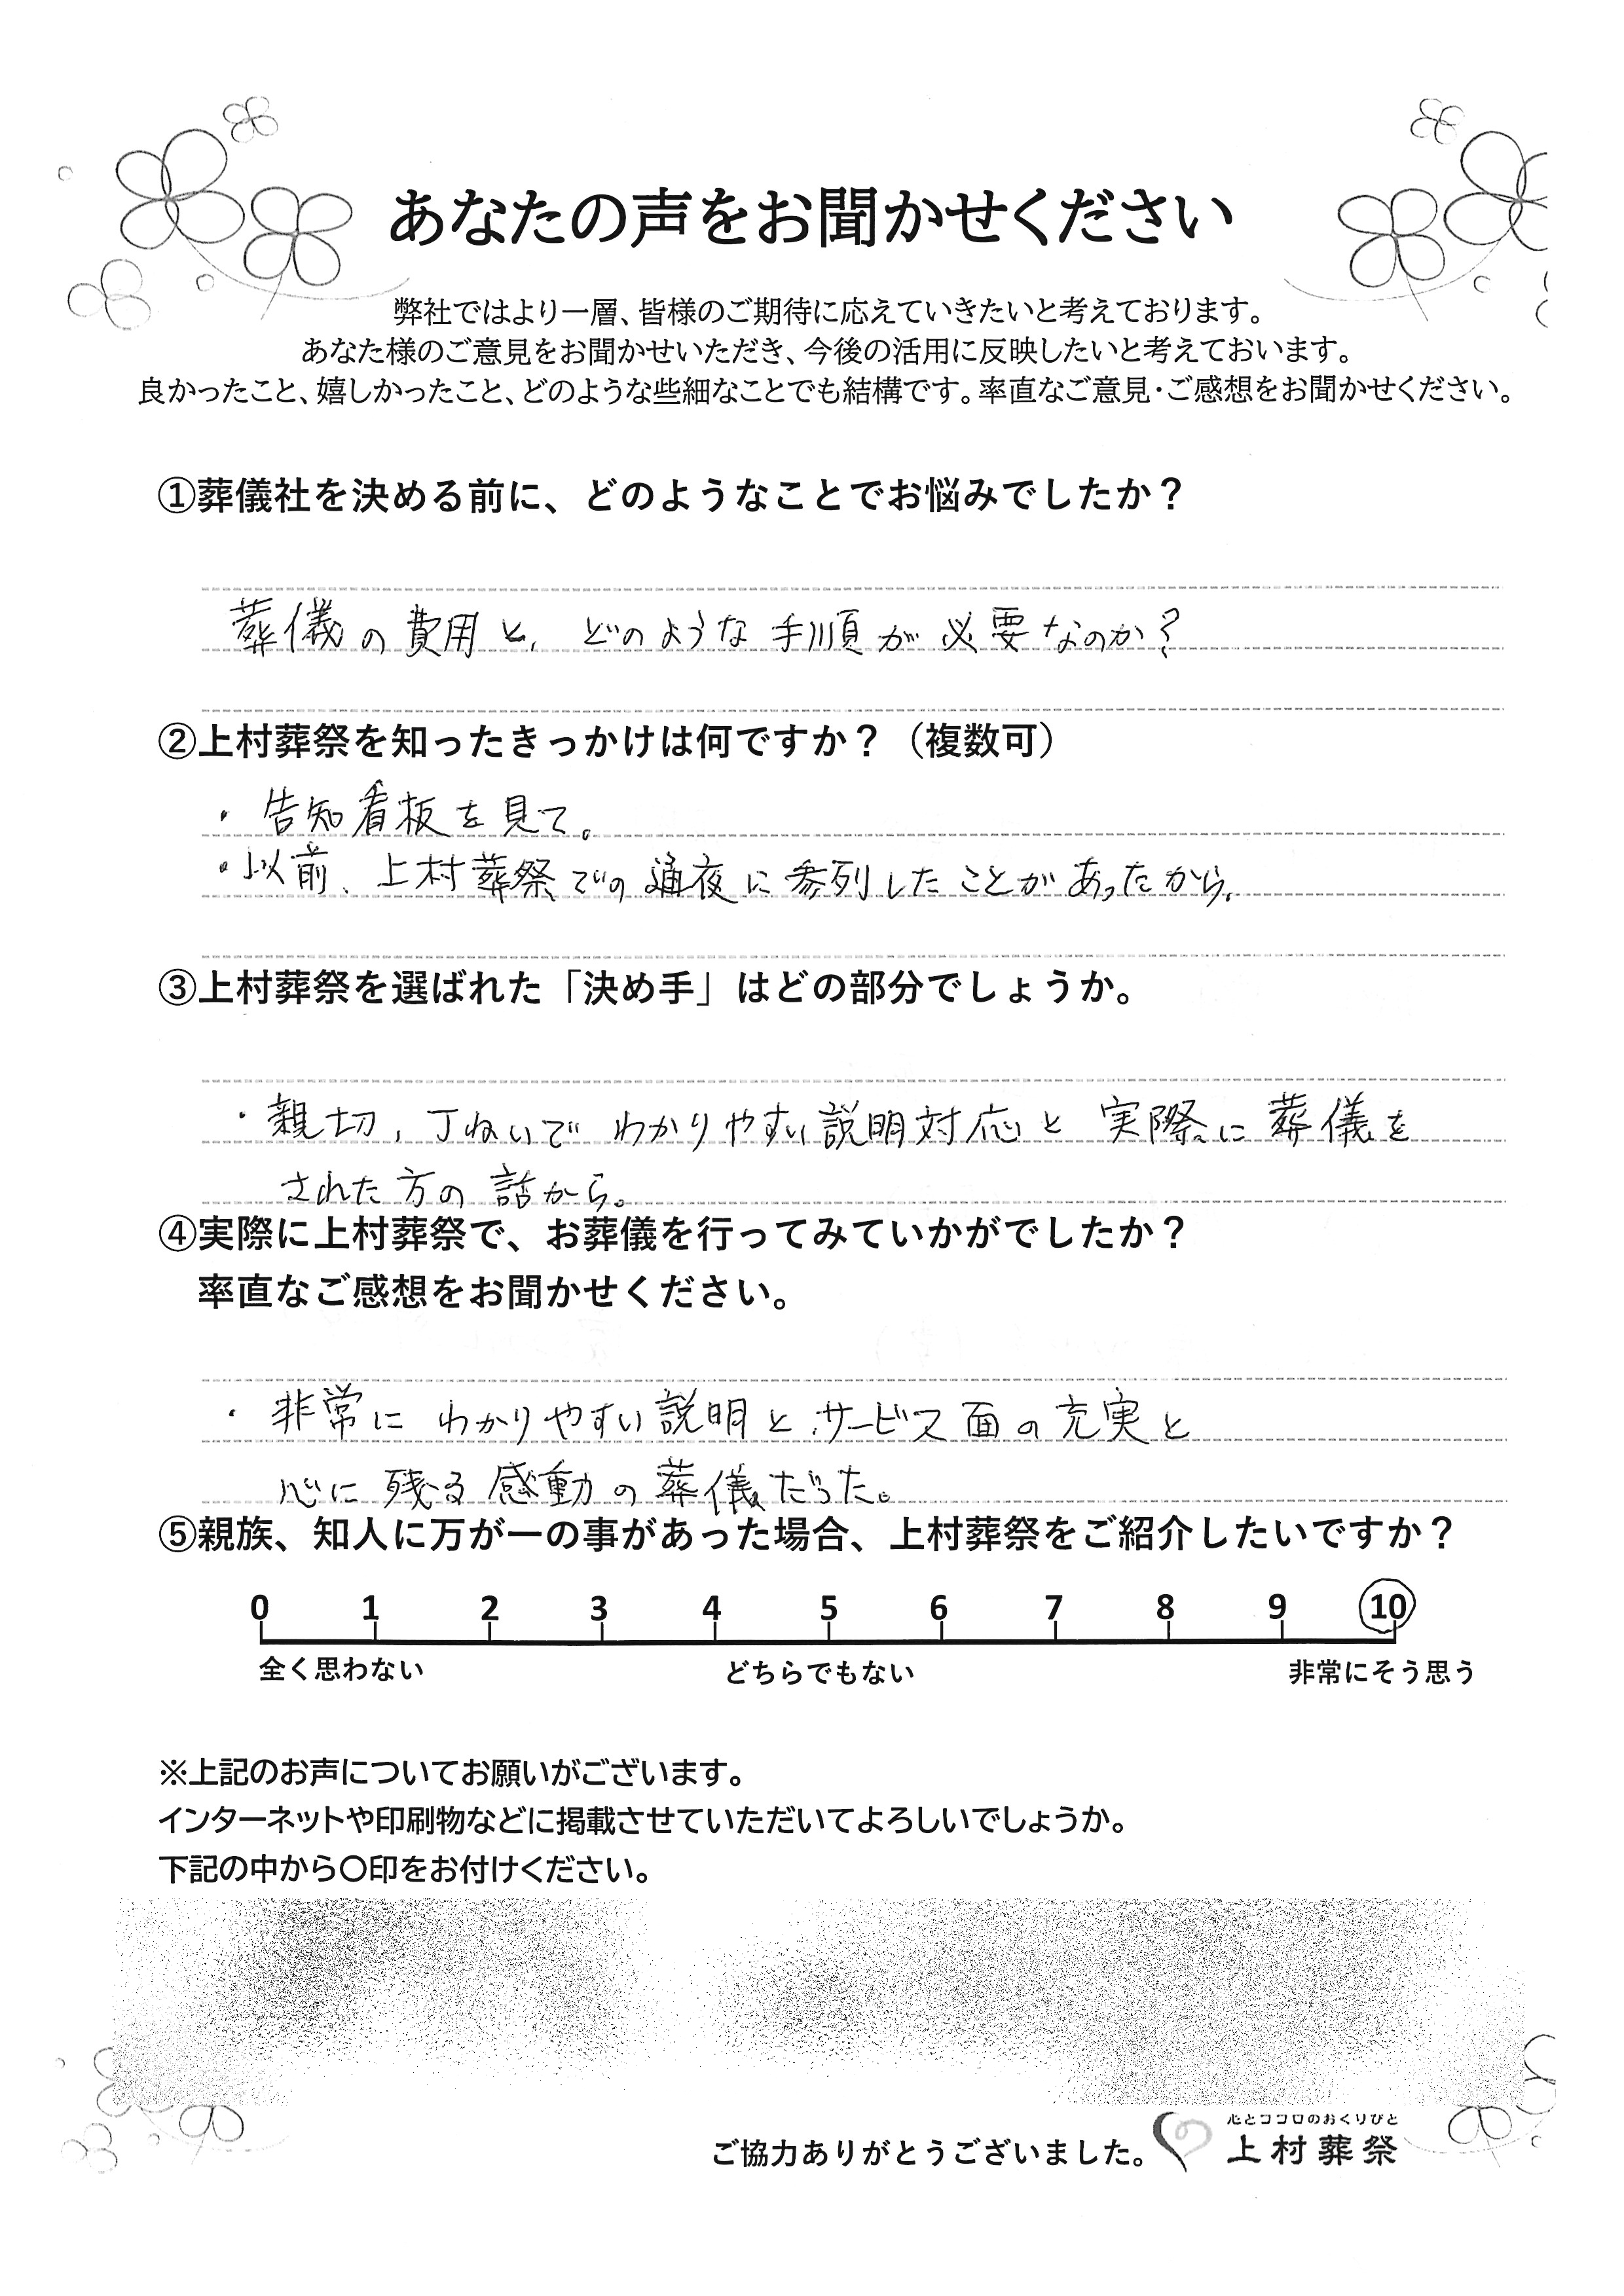 あなたの声をお聞かせください
弊社ではより一層、皆様のご期待に応えていきたいと考えております。
あなた様のご意見をお聞かせいただき、今後の活用に反映したいと考えておいます。
良かったこと、嬉しかったこと、どのような些細なことでも結構です。率直なご意見・ご感想をお聞かせください。
①葬儀社を決める前に、どのようなことでお悩みでしたか？
葬儀の費用と、どのような手順が必要なのか？
②上村葬祭を知ったきっかけは何ですか？（複数可）
・告知看板を見て。
・以前、上村葬祭での通夜に参列したことがあったから。
③上村葬祭を選ばれた「決め手」はどの部分でしょうか。
・親切，丁ねいでわかりやすい説明対応と実際に葬儀を
された方の話から。
④実際に上村葬祭で、お葬儀を行ってみていかがでしたか？
率直なご感想をお聞かせください。
・非常にわかりやすい説明とサービス面の充実と
心に残る感動の葬儀だった。
⑤親族、知人に万が一の事があった場合、上村葬祭をご紹介したいですか？
0 1 2 3 4 5 6 7 8 9 10
全く思わない どちらでもない 非常にそう思う
※上記のお声についてお願いがございます。
インターネットや印刷物などに掲載させていただいてよろしいでしょうか。
下記の中から〇印をお付けください。
心とココロのおくりびと
ご協力ありがとうございました。 上村葬祭